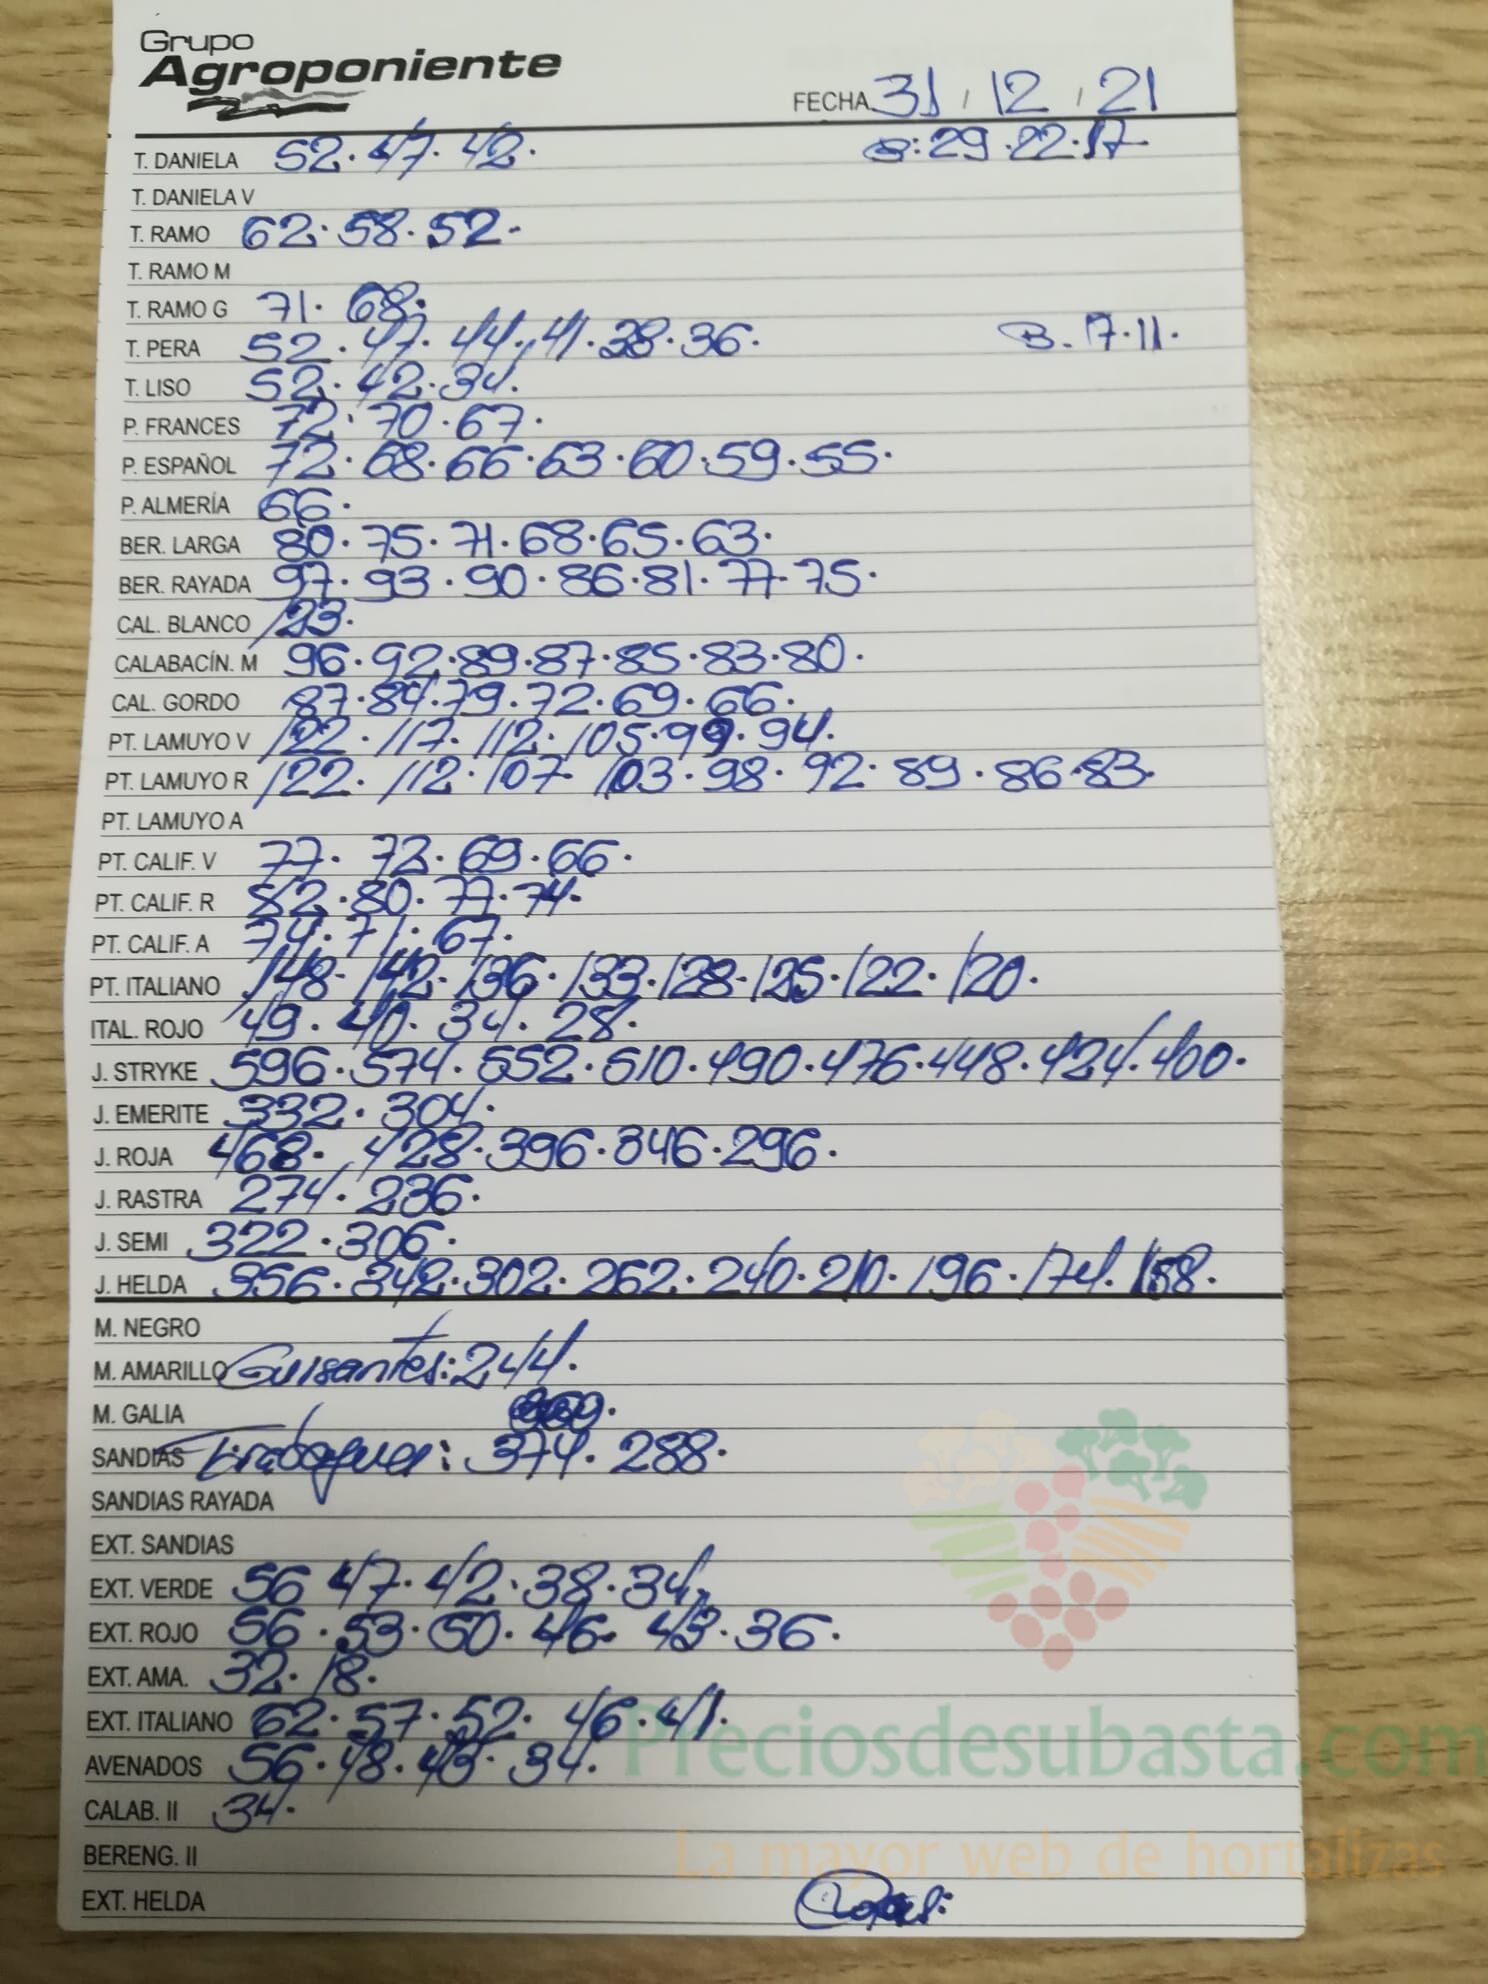 Grupo
Agroponiente
FECHA 31 / 12 / 21
T. DANIELA 52. 47. 42. B: 29. 22. 17
T. DANIELA V
T. RAMO 62. 58. 52.
T. RAMO M
T. RAMO G 71. 68.
T. PERA 52. 47. 44. 41. 38. 36. B. 17. 11.
T. LISO 52. 42. 34.
P. FRANCES 72. 70. 67.
P. ESPAÑOL 72. 68. 66. 63. 60. 59. 55.
P. ALMERÍA 66.
BER. LARGA 80. 75. 71. 68. 65. 63.
BER. RAYADA 97. 93. 90. 86. 81. 77. 75.
CAL. BLANCO 123.
CALABACÍN. M 96. 92. 89. 87. 85. 83. 80.
CAL. GORDO 87. 84. 79. 72. 69. 66.
PT. LAMUYO V 122. 117. 112. 105. 99. 94.
PT. LAMUYO R 122. 112. 107. 103. 98. 92. 89. 86. 83.
PT. LAMUYO A
PT. CALIF. V 77. 72. 69. 66.
PT. CALIF. R 82. 80. 77. 74.
PT. CALIF. A 74. 71. 67.
PT. ITALIANO 148. 142. 136. 133. 128. 125. 122. 120.
ITAL. ROJO 49. 40. 34. 28.
J. STRYKE 596. 574. 552. 510. 490. 476. 448. 424. 400.
J. EMERITE 332. 304.
J. ROJA 468. 428. 396. 346. 296.
J. RASTRA 274. 236.
J. SEMI 322. 306.
J. HELDA 356. 342. 302. 262. 240. 210. 196. 174. 158.
M. NEGRO
M. AMARILLO Guisantes: 244.
M. GALIA
SANDIAS Tirabeques: 374. 288.
SANDIAS RAYADA
EXT. SANDIAS
EXT. VERDE 56 47. 42. 38. 34.
EXT. ROJO 56. 53. 50. 46. 43. 36.
EXT. AMA. 32. 18.
EXT. ITALIANO 62. 57. 52. 46. 41.
AVENADOS 56. 48. 43. 34.
CALAB. II 34.
BERENG. II
EXT. HELDA
Preciosdesubasta.com
La mayor web de hortalizas